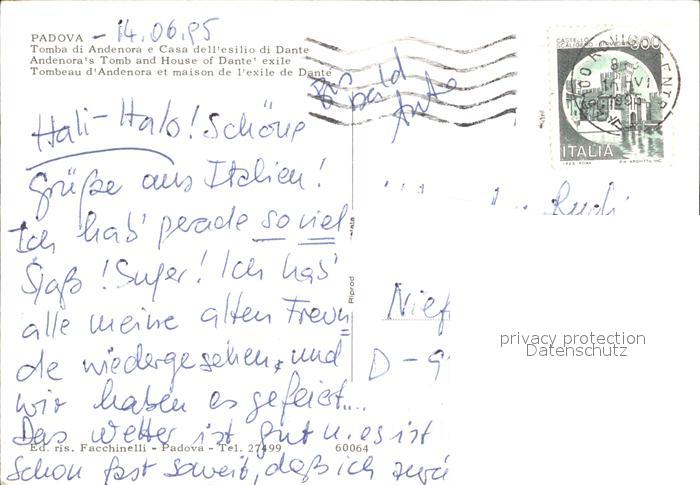 PADOVA - 14.06.95
Tomba di Andenora e Casa dell'esilio di Dante
Andenora's Tomb and House of Dante' exile
Tombeau d'Andenora et maison de l'exile de Dante
Bis bald
Hali-Halo! Schöne
Grüße aus Italien!
Ich hab' gerade so viel
Spaß! Super! Ich hab'
alle meine alten Freun=
de wiedergesehen, und
wir haben es gefeiert...
Das Wetter ist gut u. es ist
schon fast soweit, daß ich
Ed. ris. Facchinelli - Padova - Tel. 27499 60064
Riprod
CASTELLO
ITALIA
D - 9
privacy protection
Datenschutz